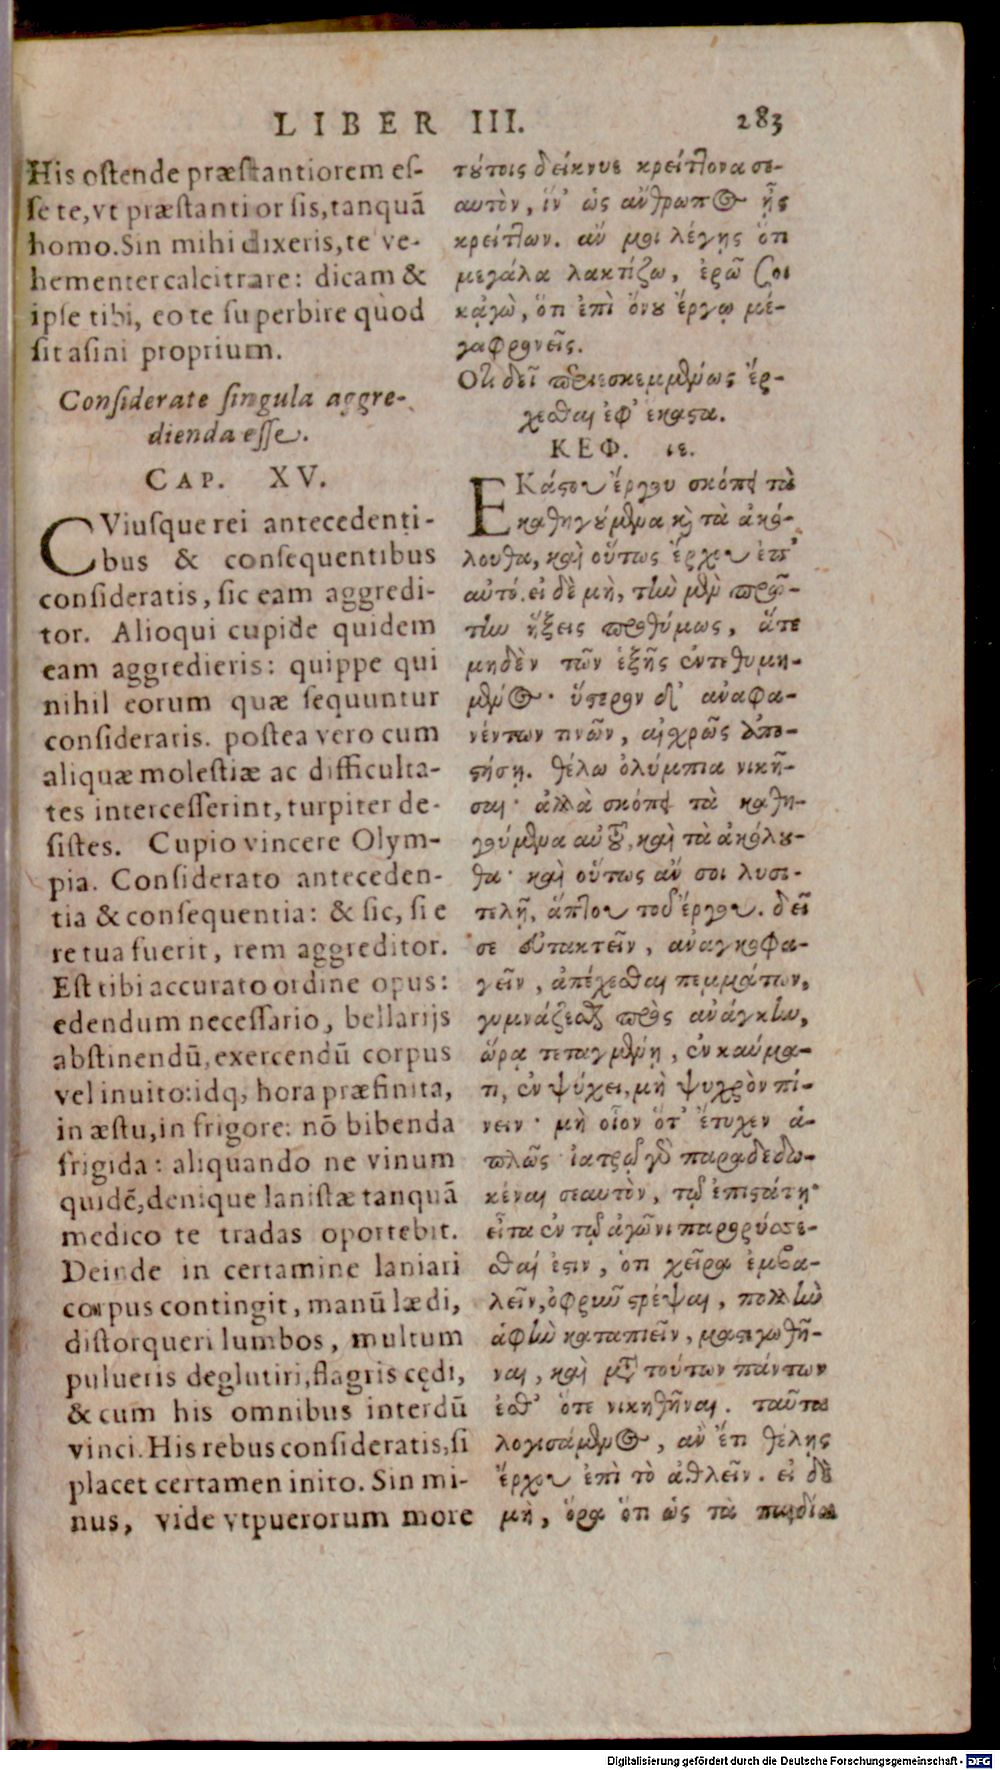 LIBER III. 283
His ostende præstantiorem es-
se te, vt præstantior sis, tanquã
homo. Sin mihi dixeris, te ve-
hementer calcitrare: dicam &
ipse tibi, eo te superbire quòd
sit asini proprium.
Considerate singula aggre-
dienda esse.
CAP. XV.
CViusque rei antecedenti-
bus & consequentibus
consideratis, sic eam aggredi-
tor. Alioqui cupide quidem
eam aggredieris: quippe qui
nihil eorum quæ sequuntur
consideraris. postea vero cum
aliquæ molestiæ ac difficulta-
tes intercesserint, turpiter de-
sistes. Cupio vincere Olym-
pia. Considerato anteceden-
tia & consequentia: & sic, si e
re tua fuerit, rem aggreditor.
Est tibi accurato ordine opus:
edendum necessario, bellarijs
abstinendũ, exercendũ corpus
vel inuito: idq; hora præfinita,
in æstu, in frigore: nõ bibenda
frigida: aliquando ne vinum
quidẽ, denique lanistæ tanquã
medico te tradas oportebit.
Deinde in certamine laniari
corpus contingit, manũ lædi,
distorqueri lumbos, multum
pulueris deglutiri, flagris cędi,
& cum his omnibus interdũ
vinci. His rebus consideratis, si
placet certamen inito. Sin mi-
nus, vide vt puerorum more
τούτοις δείκνυε κρείττονα σε-
αυτὸν, ἵν' ὡς ἄνθρωπος ᾖς
κρείττων. ἄν μοι λέγῃς ὅτι
μεγάλα λακτίζω, ἐρῶ σοι
κᾀγὼ, ὅτι ἐπὶ ὄνου ἔργῳ μέ-
γα φρονεῖς.
Ὅτι δεῖ περιεσκεμμένως ἔρ-
χεσθαι ἐφ' ἕκαστα.
ΚΕΦ. ιε.
ΕΚάστου ἔργου σκόπει τὰ
καθηγούμενα καὶ τὰ ἀκό-
λουθα, καὶ οὕτως ἔρχου ἐπ'
αὐτό. εἰ δὲ μὴ, τὴν μὲν πρώ-
την ἥξεις προθύμως, ἅτε
μηδὲν τῶν ἑξῆς ἐντεθυμη-
μένος· ὕστερον δ' ἀναφα-
νέντων τινῶν, αἰχρῶς ἀπο-
στήσῃ. θέλω ὀλύμπια νικῆ-
σαι· ἀλλὰ σκόπει τὰ καθη-
γούμενα αὐτοῦ, καὶ τὰ ἀκόλου-
θα· καὶ οὕτως ἄν σοι λυσι-
τελῇ, ἅπτου τοῦ ἔργου. δεῖ
σε εὐτακτεῖν, ἀναγκοφα-
γεῖν, ἀπέχεσθαι πεμμάτων,
γυμνάζεσθαι πρὸς ἀνάγκην,
ὥρᾳ τεταγμένῃ, ἐν καύμα-
τι, ἐν ψύχει, μὴ ψυχρὸν πί-
νειν· μὴ οἶον ὅτ' ἔτυχεν ἁ-
πλῶς ἰατρῷ γὰρ παραδεδω-
κέναι σεαυτὸν, τῷ ἐπιστάτῃ·
εἶτα ἐν τῷ ἀγῶνι παρορύσσε-
σθαί ἐστιν, ὅτι χεῖρα ἐμβα-
λεῖν, ὀφρὺν στρέψαι, πολλὴν
ἁφὴν καταπιεῖν, μαστιγωθῆ-
ναι, καὶ μετὰ τούτων πάντων
ἔσθ' ὅτε νικηθῆναι. ταῦτα
λογισάμενος, ἂν ἔτι θέλῃς
ἔρχου ἐπὶ τὸ ἀθλεῖν. εἰ δὲ
μὴ, ὅρα ὅτι ὡς τὰ παιδία
Digitalisierung gefördert durch die Deutsche Forschungsgemeinschaft - DFG